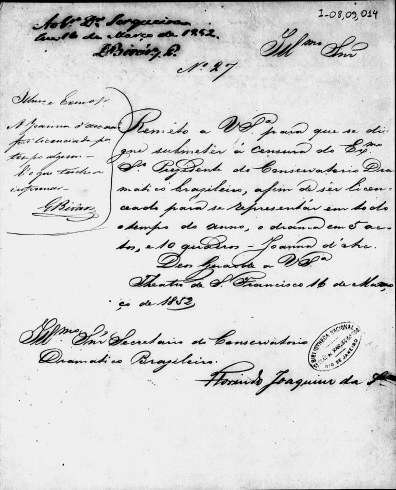 I-08,09,014
Ao Sr. Dr.
em 16 de Março de 1852.
D. Bivár, P.
Illmo Snr
No. 27
Illmo e Exmo Sr.
A Joanna d'arc
foi licenciada
É o que tenho a
informar
Remeto a VSa para que se di
gne submeter á censura do Exmo
Sr. Prezidente do Conservatorio Dra
matico Brazileiro, afim de ser licen
ceado para se reprezentar em todo
o tempo do anno, o drama em 5 ac
tos, e 10 quadros - Joanna d'Arc.
Deos Guarde a VSa
Theatro de S. Francisco 16 de Mar
ço de 1852
Illmo Snr Secretario do Conservatorio
Dramatico Brazileiro.
BIBLIOTHECA NACIONAL
RIO DE JANEIRO
Florindo Joaquim da